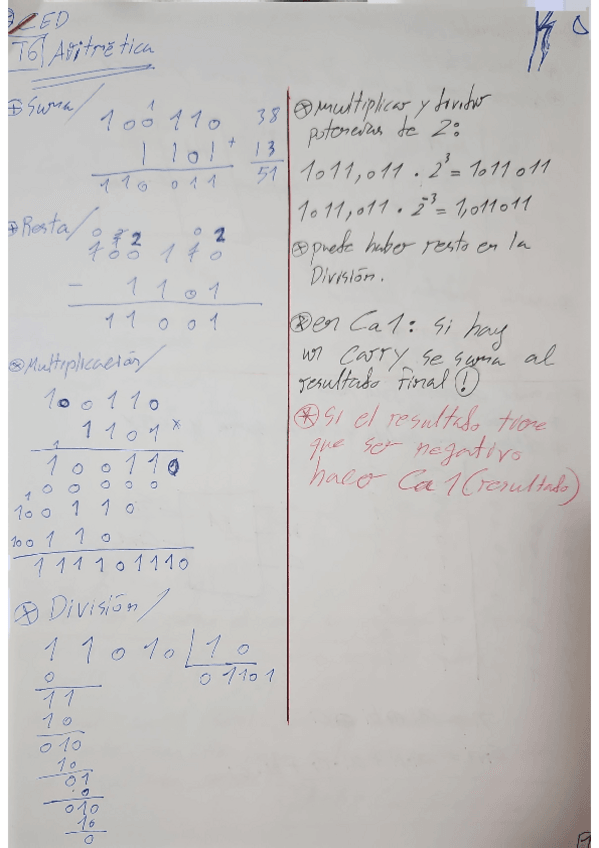 CED
T6 Aritmética
⊛ Suma/
1
100110 38
1101 + 13
110011 51
⊛ Resta/
0 1 2 0 2
100110
- 1101
11001
⊛ Multiplicación/
100110
1101 x
100110
000000
100110
100110
111101110
⊛ División/
11010 | 10
0 01101
11
10
010
10
01
0
010
10
0
⊛ multiplicar y dividir
potencias de 2:
1011,011 · 2³ = 1011011
1011,011 · 2⁻³ = 1,011011
⊛ puede haber resto en la
División.
⊛ en Ca1: si hay
un carry se suma al
resultado final (!)
⊛ Si el resultado tiene
que ser negativo
hacer Ca1(resultado)